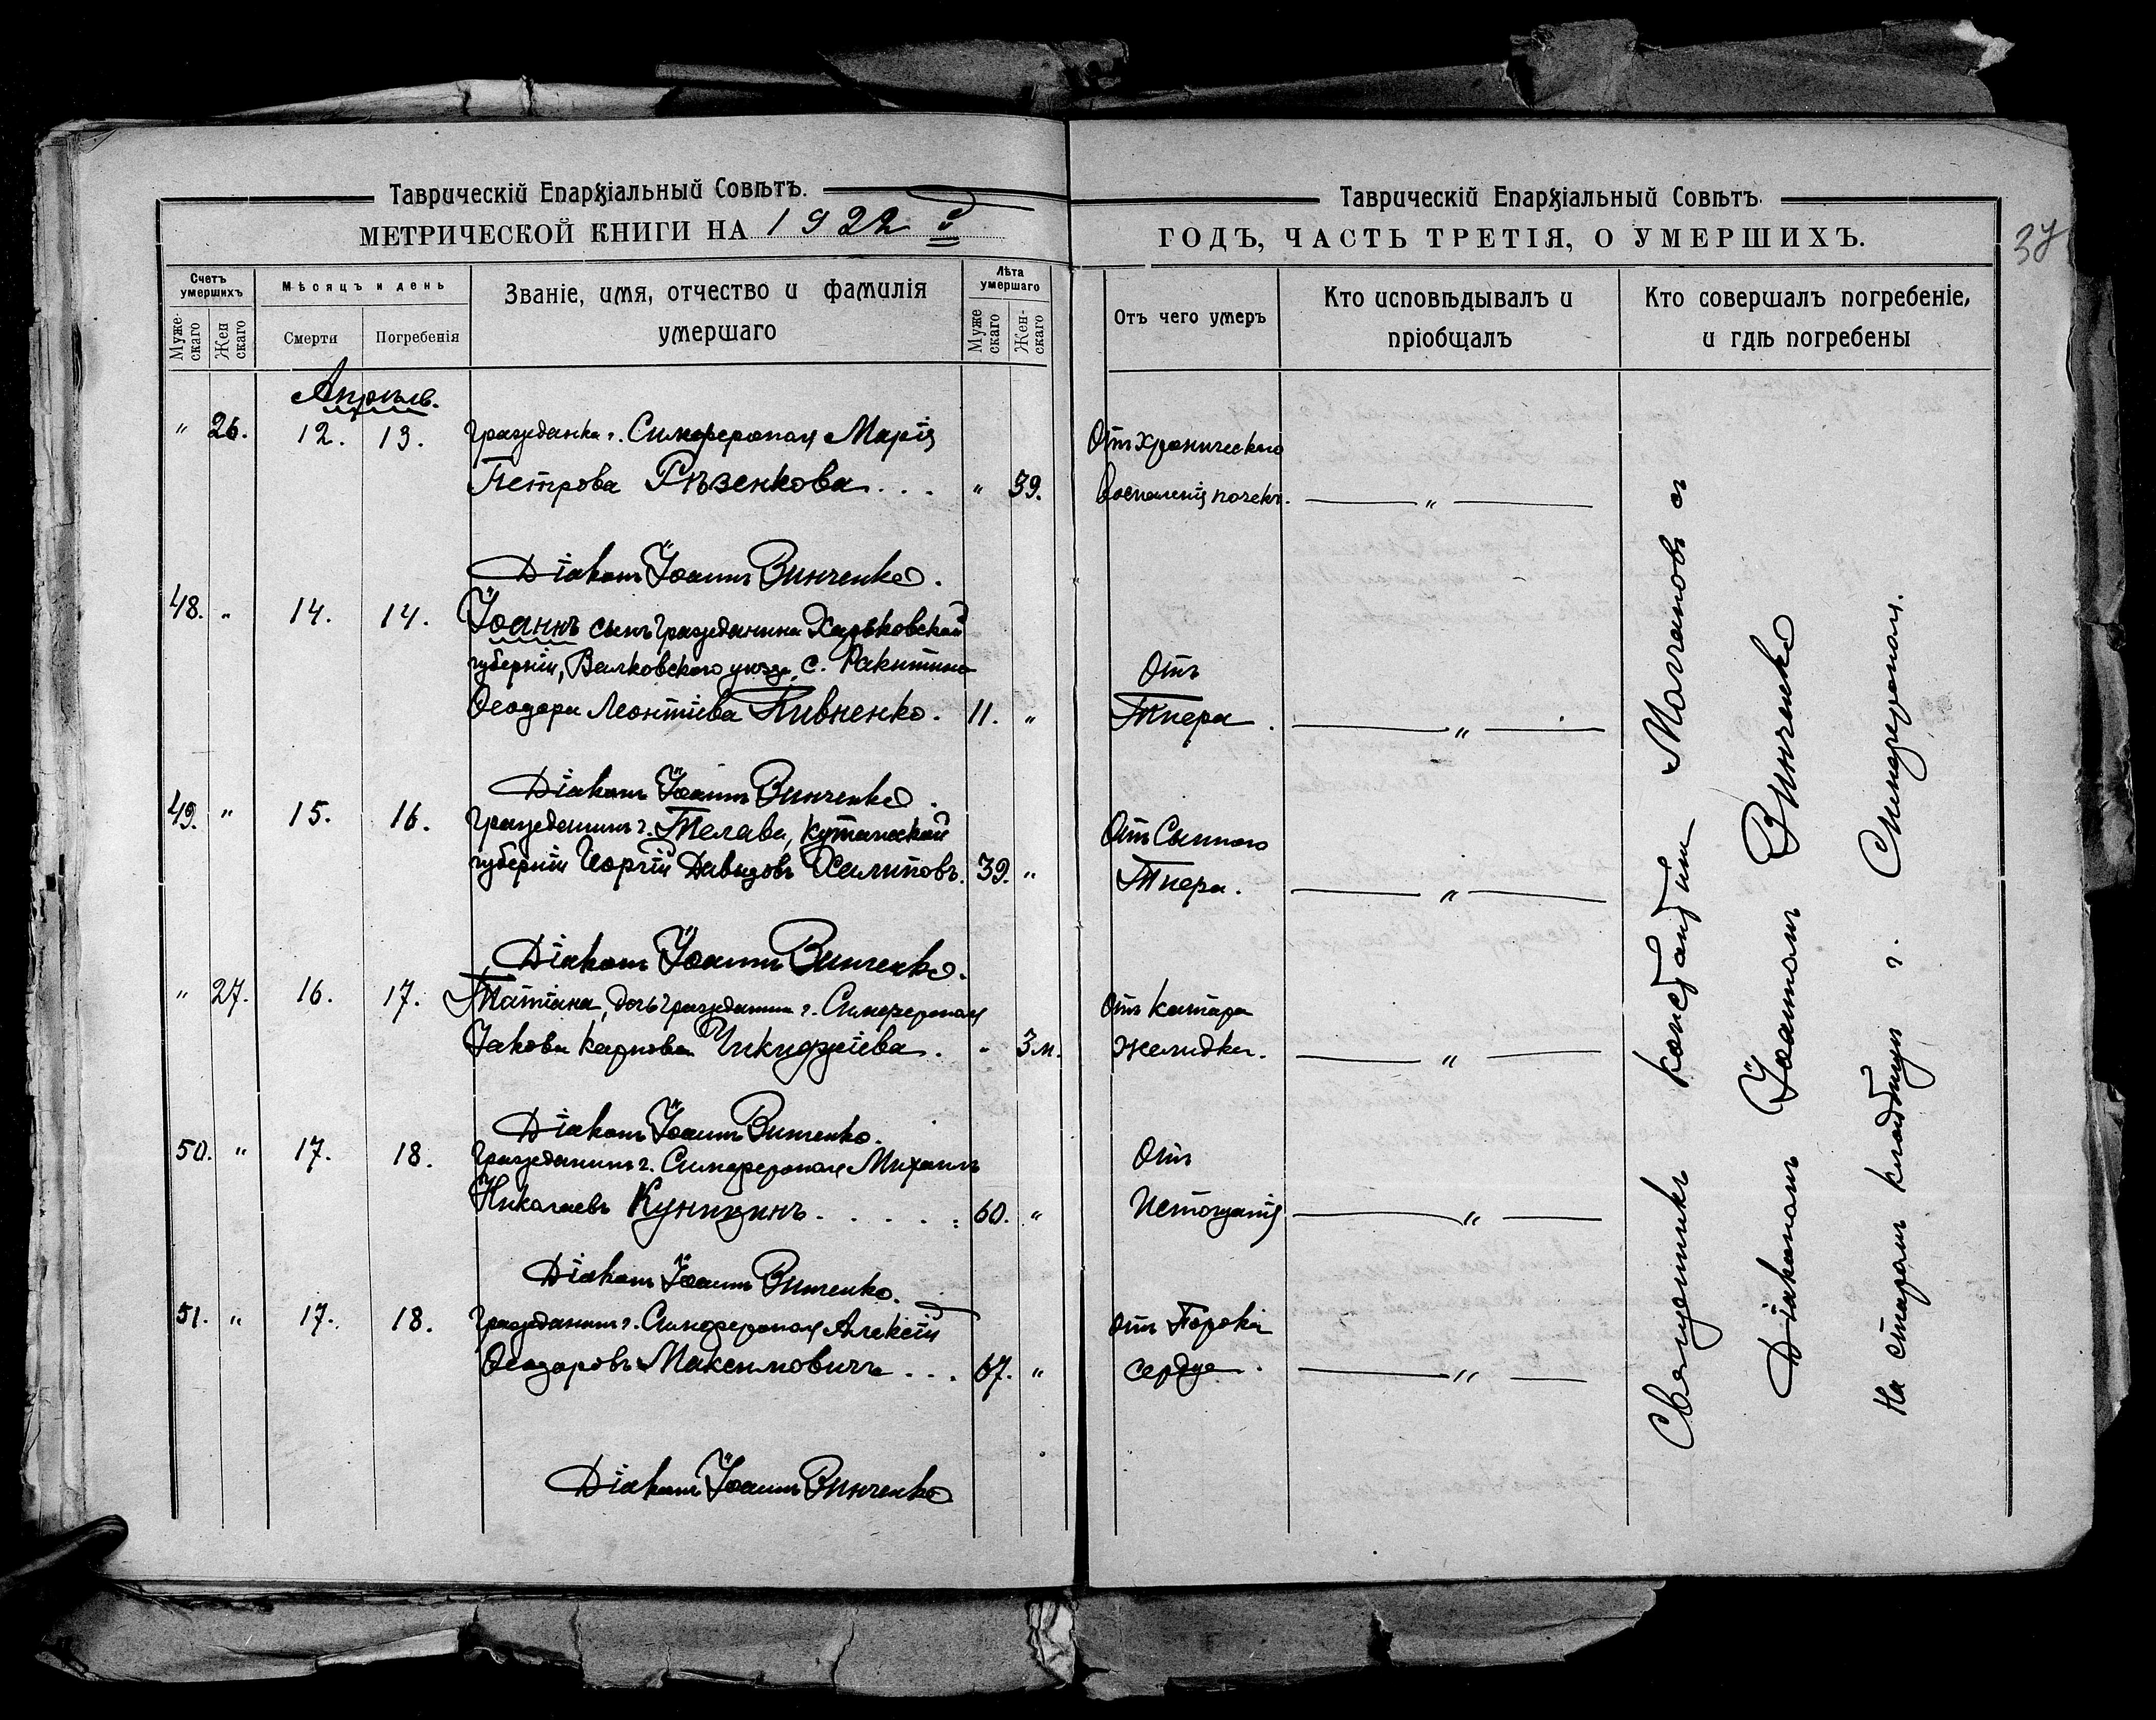 Таврическій Епархіальный Совѣтъ.
МЕТРИЧЕСКОЙ КНИГИ НА 1922 й
Счетъ умершихъ
Муже-
скаго
Жен
скаго
Мѣсяцъ и день
Смерти
Погребенія
Званіе, имя, отчество и фамилія
умершаго
Лѣта
умершаго
Муже
скаго
Жен-
скаго
Апрѣль.
" 26. 12. 13. Гражданка г. Симферополя Марія
Петрова Рѣзенкова . . . " 39.
Діаконъ Іоаннъ Винченко.
48. " 14. 14. Іоаннъ сынъ гражданина Харьковской
губерніи, Валковского уѣзда, с. Ракитина
Ѳеодора Леонтіева Пивненко. 11. "
Діаконъ Іоаннъ Винченко.
49. " 15. 16. Гражданинъ г. Телава, Кутаиской
губерніи Георгій Давидовъ Хелиповъ. 39. "
Діаконъ Іоаннъ Винченко.
" 27. 16. 17. Татіана, дочь гражданина г. Симферополя
Іакова Карпова Чикиджіева. " 3 м.
Діаконъ Іоаннъ Винченко.
50. " 17. 18. Гражданинъ г. Симферополя Михаилъ
Николаевъ Куницинъ . . . . . 60. "
Діаконъ Іоаннъ Винченко.
51. " 17. 18. Гражданинъ г. Симферополя Алексій
Ѳеодоровъ Максимовичъ . . . 67. "
Діаконъ Іоаннъ Винченко
Таврическій Епархіальный Совѣтъ.
ГОДЪ, ЧАСТЬ ТРЕТІЯ, О УМЕРШИХЪ.
37
Отъ чего умеръ
Кто исповѣдывалъ и
пріобщалъ
Кто совершалъ погребеніе,
и гдѣ погребены
Отъ Хроническаго
воспаленія почекъ. — " —
Отъ
Тифа. — " —
Отъ Сыпного
Тифа. — " —
Отъ Катара
желудка. — " —
Отъ
Истощанія — " —
Отъ Порока
сердца. — " —
Священникъ Константинъ Молчановъ съ
Діакономъ Іоанномъ Винченко
На старомъ кладбищѣ г. Симферополя.